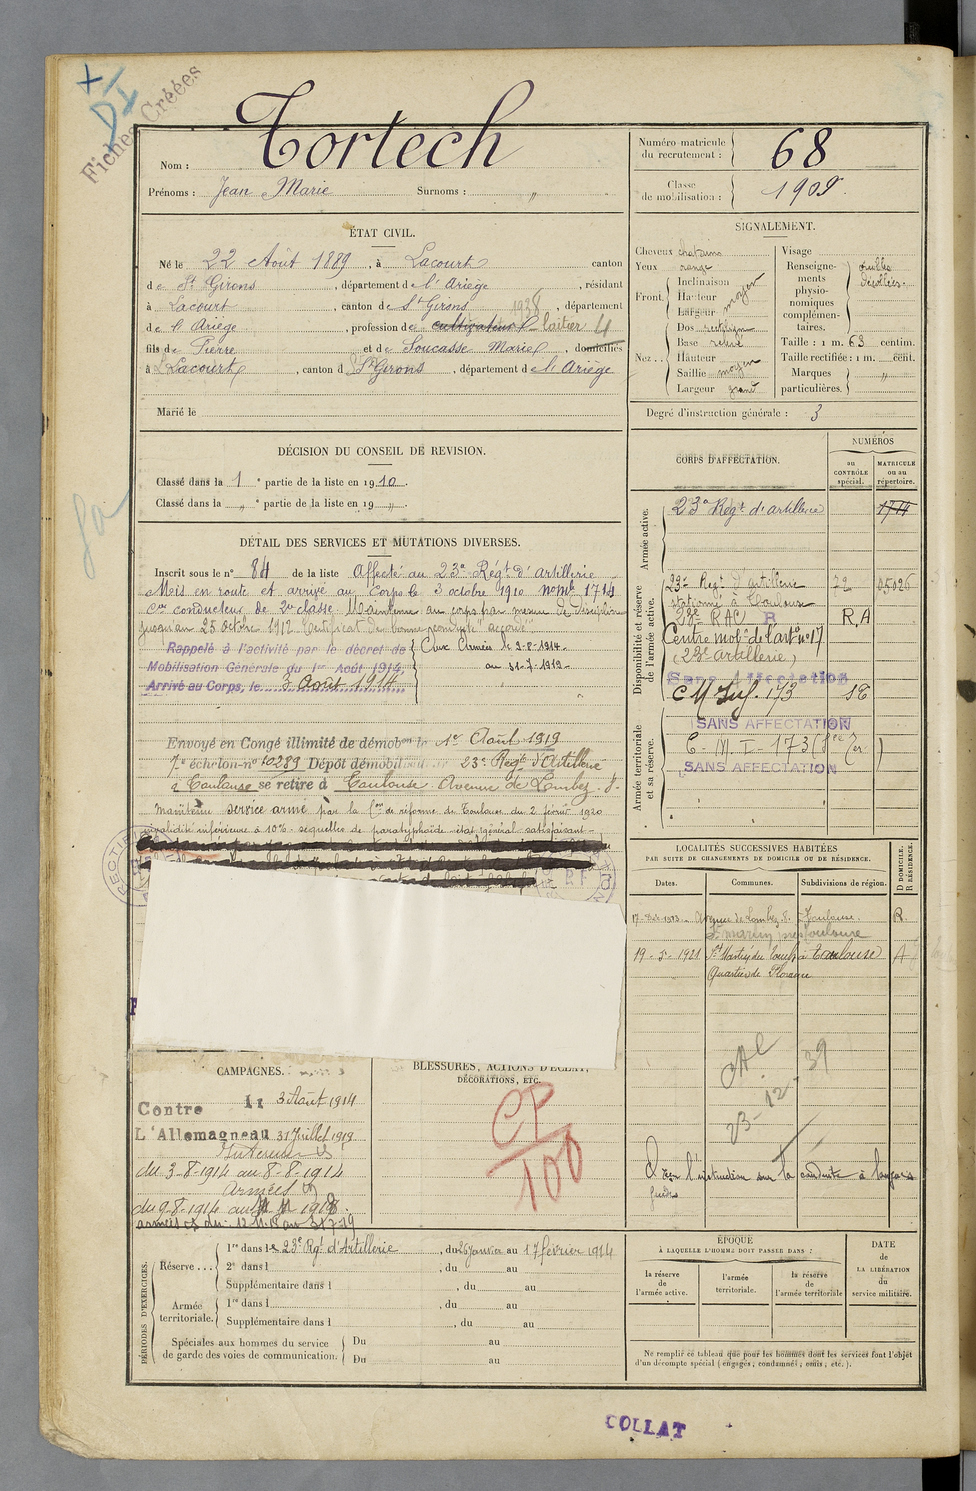 Fiches Créées
Nom : Tortech
Prénoms : Jean Marie Surnoms : "
Numéro matricule du recrutement : 68
Classe de mobilisation : 1909
ÉTAT CIVIL.
Né le 22 Août 1889, à Lacourt canton
de St Girons, département de l'Ariège, résidant
à Lacourt, canton de St Girons, département
de l'Ariège, profession de cultivateur laitier
1938
4
fils de Pierre et de Soucasse Marie, domiciliés
à Lacourt, canton de St Girons, département de l'Ariège
Marié le
DÉCISION DU CONSEIL DE REVISION.
Classé dans la 1e partie de la liste en 1910.
Classé dans la " e partie de la liste en 19 ".
DÉTAIL DES SERVICES ET MUTATIONS DIVERSES.
Inscrit sous le n° 84 de la liste Affecté au 23e Régt d'artillerie
Mis en route et arrivé au Corps le 3 octobre 1910 no ml 1714
conducteur de 2e classe Maintenu au corps par mesure de discipline
jusqu'au 25 octobre 1912. Certificat de bonne conduite "accordé"
Rappelé à l'activité par le décret de
Mobilisation Générale du 1er Août 1914
Arrivé au Corps, le 3 Août 1914
Aux Armées le 9-8-1914
au 31-7-1919
Envoyé en Congé illimité de démobon le 1er Août 1919
échelon n° 10289 Dépôt démobilisateur 23e Régt d'Artillerie
à Toulouse se retire à Toulouse Avenue de Lombez 8
Maintenu service armé par la Con de réforme de Toulouse du 2 février 1920
invalidité inférieure à 10% séquelles de paratyphoïde état général satisfaisant
SIGNALEMENT.
Cheveux chatains
Yeux orange
Front. Inclinaison
Hauteur moyen
Largeur
Nez. Dos rectiligne
Base
Hauteur
Saillie moyen
Largeur grand
Visage
Renseignements physionomiques complémentaires. oreilles décollées.
Taille : 1 m. 63 centim.
Taille rectifiée : 1 m. cent.
Marques particulières. "
Degré d'instruction générale : 3
CORPS D'AFFECTATION.
NUMÉROS
au CONTRÔLE spécial.
MATRICULE ou au répertoire.
Armée active.
23e Régt d'artillerie 1714
Disponibilité et réserve de l'armée active.
23e Régt d'artillerie 72
stationné à Toulouse
23e RAC R R,A
Centre mobre de l'art n° 17
(23e artillerie)
Sans Affectation
C M Inf. 173
Armée territoriale et sa réserve.
SANS AFFECTATION
C. M. I. 173
SANS AFFECTATION
LOCALITÉS SUCCESSIVES HABITÉES
PAR SUITE DE CHANGEMENTS DE DOMICILE OU DE RÉSIDENCE.
Dates. Communes. Subdivisions de région. D DOMICILE. R RÉSIDENCE.
Avenue de Lombez 8. Toulouse. R.
St Martin près Toulouse
19-5-1921 St Martin du Touch à Toulouse
Quartier de
23-12-39
l'instruction sur la conduite à longues
guides
CAMPAGNES.
Contre du 3 Août 1914
L'Allemagne au 31 Juillet 1919
Intérieur
du 3-8-1914 au 8-8-1914
Armées
du 9-8-1914 au 1918
armées du 12.11.18 au 31-7-19
BLESSURES, ACTIONS D'ÉCLAT,
DÉCORATIONS, ETC.
CP
100
PÉRIODES D'EXERCICES.
Réserve... 1re dans le 23e Rgt d'Artillerie, du 26 janvier au 17 février 1914
2e dans l , du au
Supplémentaire dans l , du au
Armée territoriale. 1re dans l , du au
Supplémentaire dans l , du au
Spéciales aux hommes du service de garde des voies de communication. Du au
Du au
ÉPOQUE
À LAQUELLE L'HOMME DOIT PASSER DANS :
la réserve de l'armée active.
l'armée territoriale.
la réserve de l'armée territoriale
DATE de LA LIBÉRATION du service militaire.
Ne remplir ce tableau que pour les hommes dont les services font l'objet
d'un décompte spécial (engagés ; condamnés ; omis ; etc.).
COLLAT